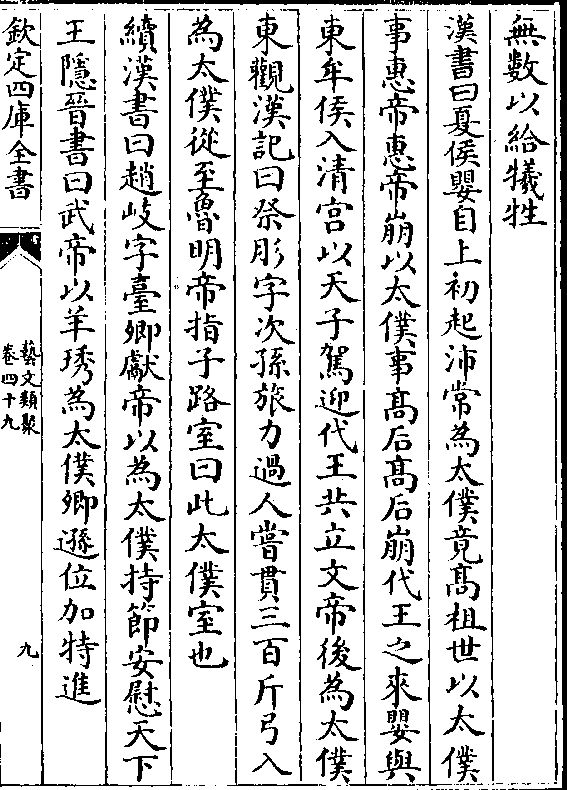 無數以給犧牲
漢書曰夏侯嬰自上初起沛常為太僕竟髙祖世以太僕
事惠帝惠帝崩以太僕事髙后髙后崩代王之來嬰與
東牟侯入清宫以天子駕迎代王共立文帝後為太僕
東觀漢記曰祭肜字次孫旅力過人嘗貫三百斤弓入
為太僕從至魯明帝指子路室曰此太僕室也
續漢書曰趙岐字臺卿獻帝以為太僕持節安慰天下
王隱晉書曰武帝以羊琇為太僕卿遜位加特進
欽定四庫全書
藝文類聚
卷四十九
九